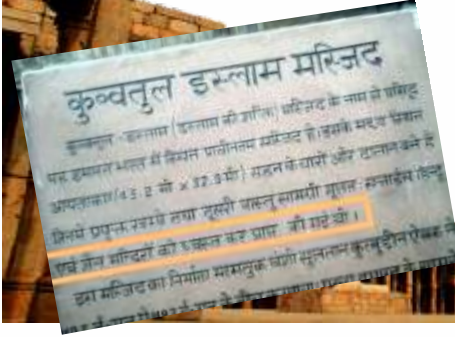 कुव्वतुल इस्लाम मस्जिद
कुव्वतुल -इस्लाम (इस्लाम की शक्ति) मस्जिद के नाम से प्रसिद्ध
यह इमारत भारत में स्थित प्राचीनतम मस्जिद है। इसके मध्य स्थित
आयताकार (43.2 मी x 32.9मी) सहन के चारों ओर दालान बने हैं
जिनमें प्रयुक्त खम्भे तथा दूसरी वास्तु सामग्री मूलतः सत्ताईस हिन्दू
एवं जैन मन्दिरों को ध्वस्त कर प्राप्त की गई थी।
इस मस्जिद का निर्माण मामलुक वंशी सुलतान कुतबुद्दीन ऐबक ने